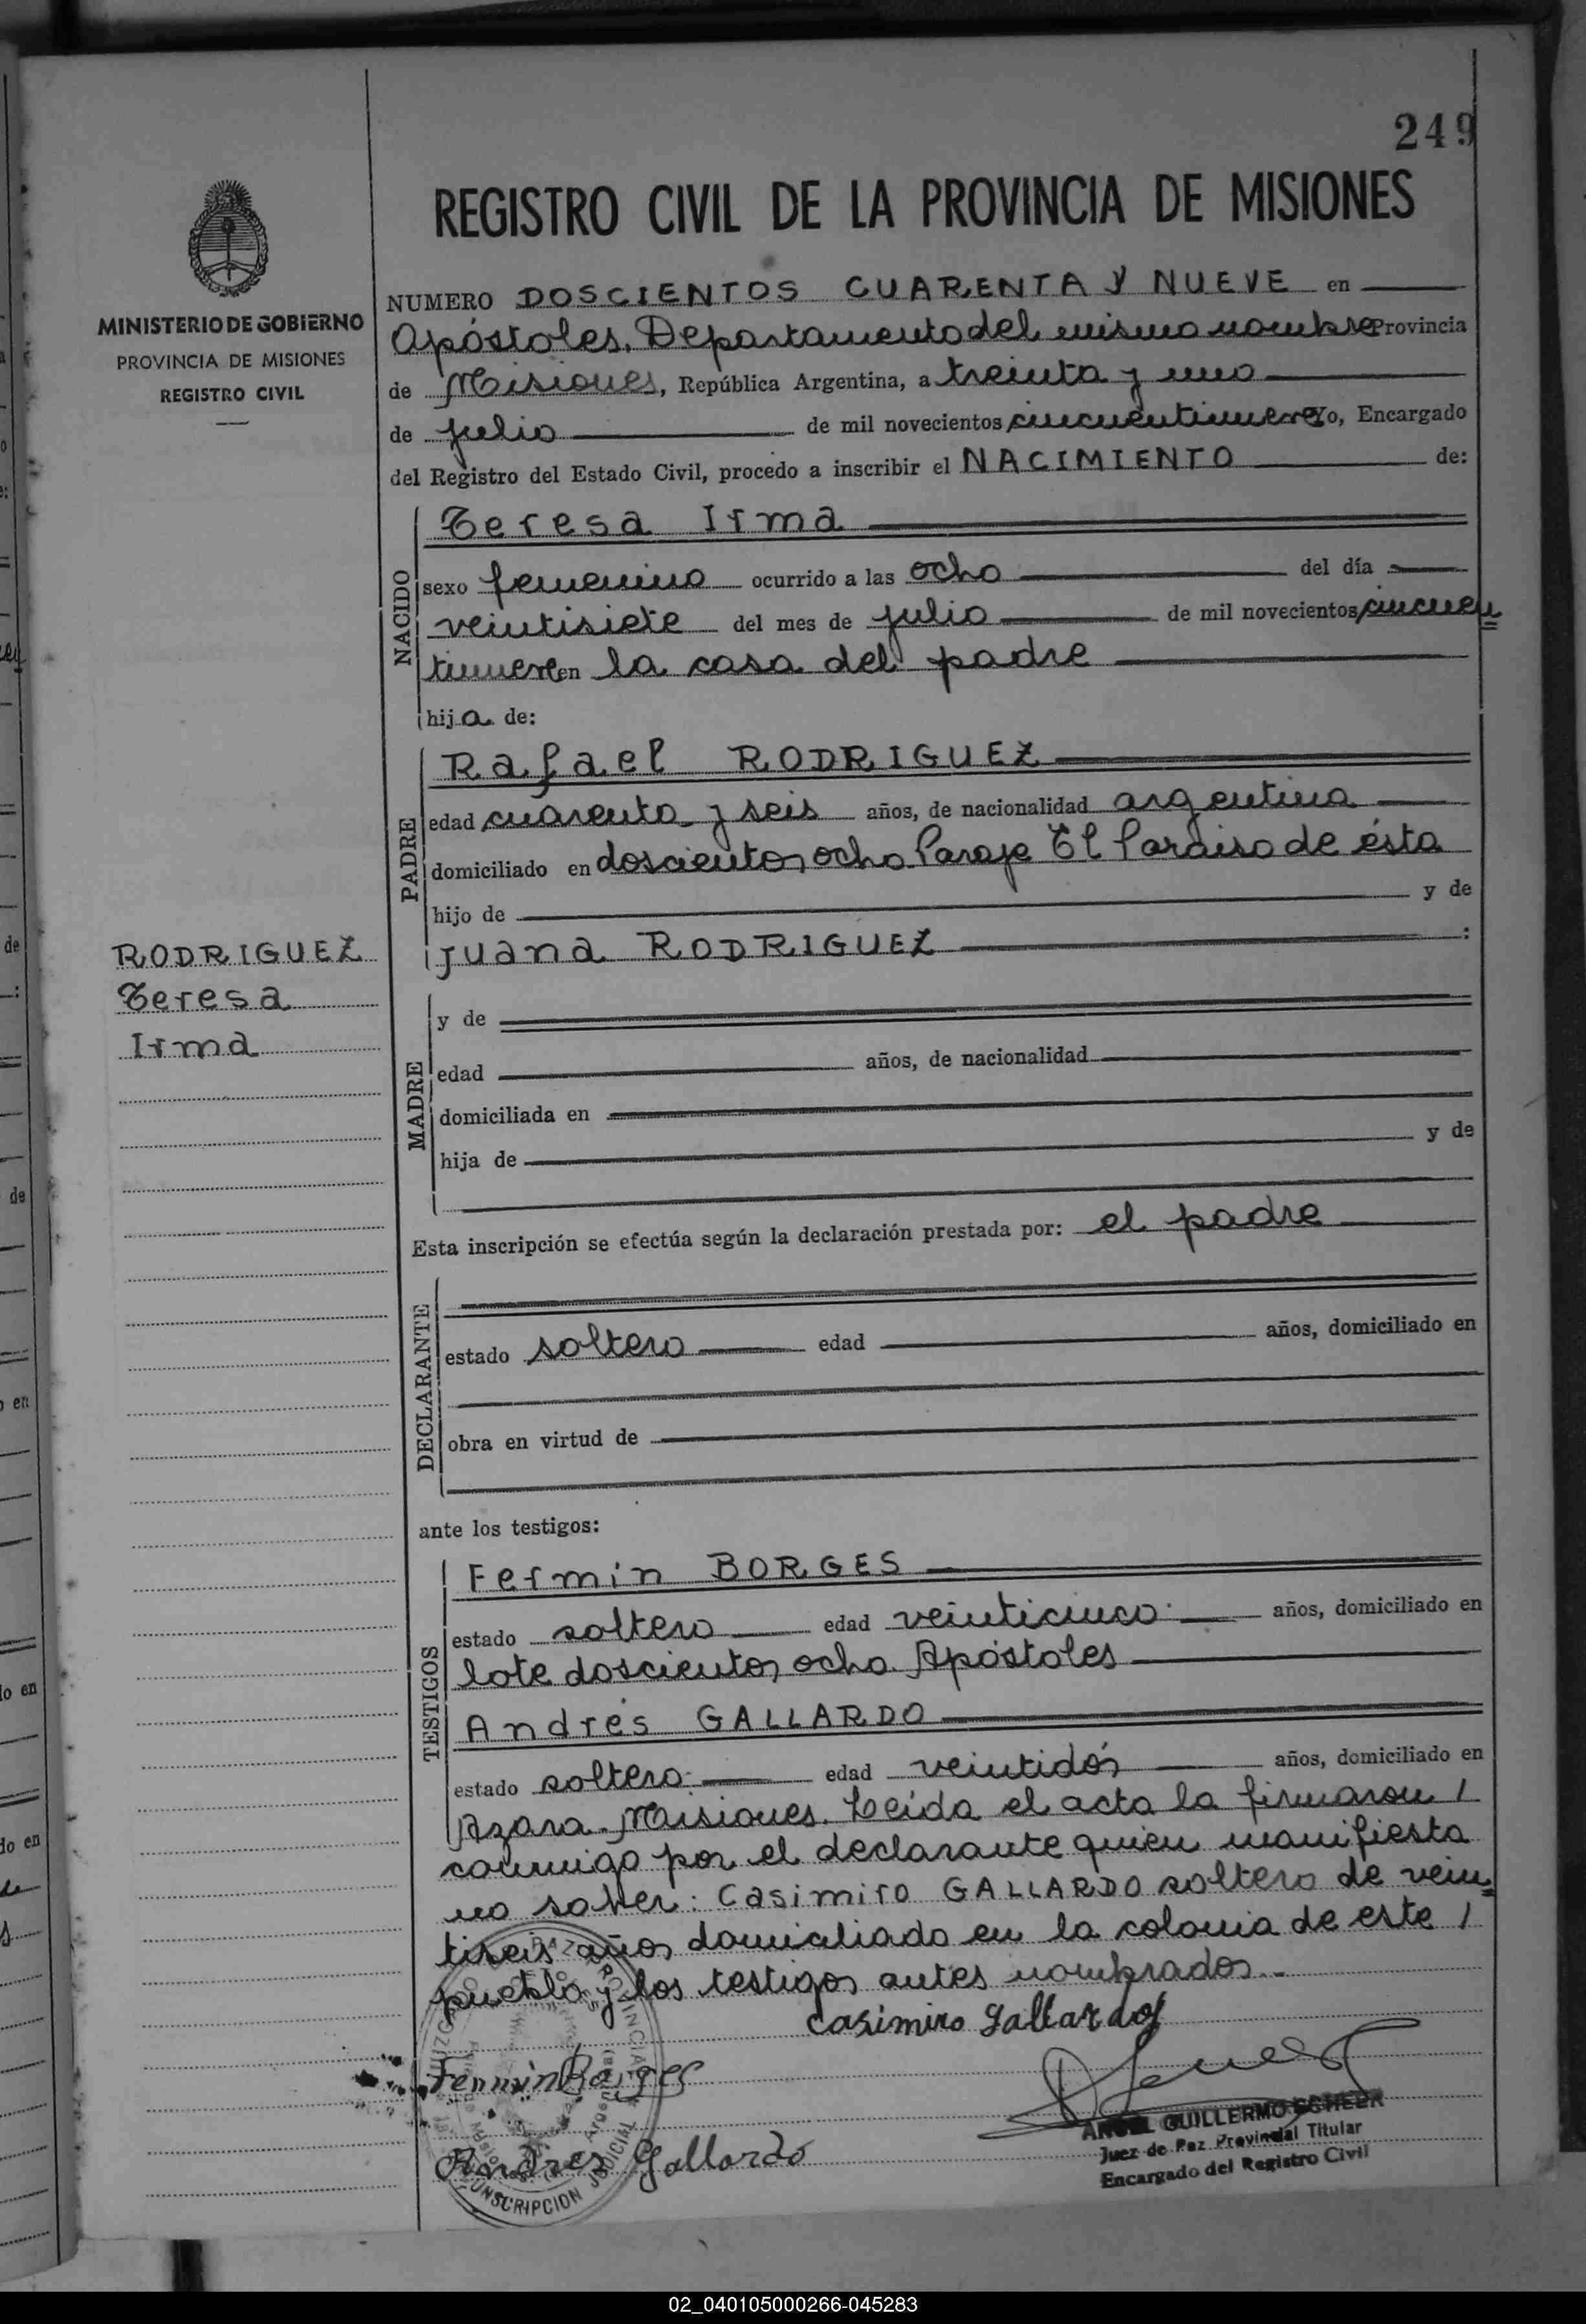 249
REGISTRO CIVIL DE LA PROVINCIA DE MISIONES
MINISTERIO DE GOBIERNO
PROVINCIA DE MISIONES
REGISTRO CIVIL
NUMERO DOSCIENTOS CUARENTA Y NUEVE en
Apóstoles. Departamento del mismo nombre Provincia
de Misiones, República Argentina, a treinta y uno
de julio de mil novecientos cincuentinueve Yo, Encargado
del Registro del Estado Civil, procedo a inscribir el NACIMIENTO de:
NACIDO
Teresa Irma
sexo femenino ocurrido a las ocho del día
veintisiete del mes de julio de mil novecientos cincuen
tinueve en la casa del padre
hija de:
PADRE
Rafael RODRIGUEZ
edad cuarenta y seis años, de nacionalidad argentina
domiciliado en doscientos ocho Paraje El Paraiso de ésta
hijo de y de
Juana RODRIGUEZ :
RODRIGUEZ
Teresa
Irma
MADRE
y de
edad años, de nacionalidad
domiciliada en
hija de y de
Esta inscripción se efectúa según la declaración prestada por: el padre
DECLARANTE
estado soltero edad años, domiciliado en
obra en virtud de
ante los testigos:
TESTIGOS
Fermín BORGES
estado soltero edad veinticinco años, domiciliado en
lote doscientos ocho Apóstoles
Andrés GALLARDO
estado soltero edad veintidós años, domiciliado en
Azara. Misiones. Leída el acta la firmaron /
conmigo por el declarante quien manifiesta
no saber: Casimiro GALLARDO soltero de vein
tiseis años domiciliado en la colonia de este /
pueblo y los testigos antes nombrados.-
Casimiro Gallardo
Fermin Borges
Andres Gallardo
CUNSCRIPCION JUDICIAL
ANGEL GUILLERMO SCHEER
Juez de Paz Provincial Titular
Encargado del Registro Civil
02_040105000266-045283